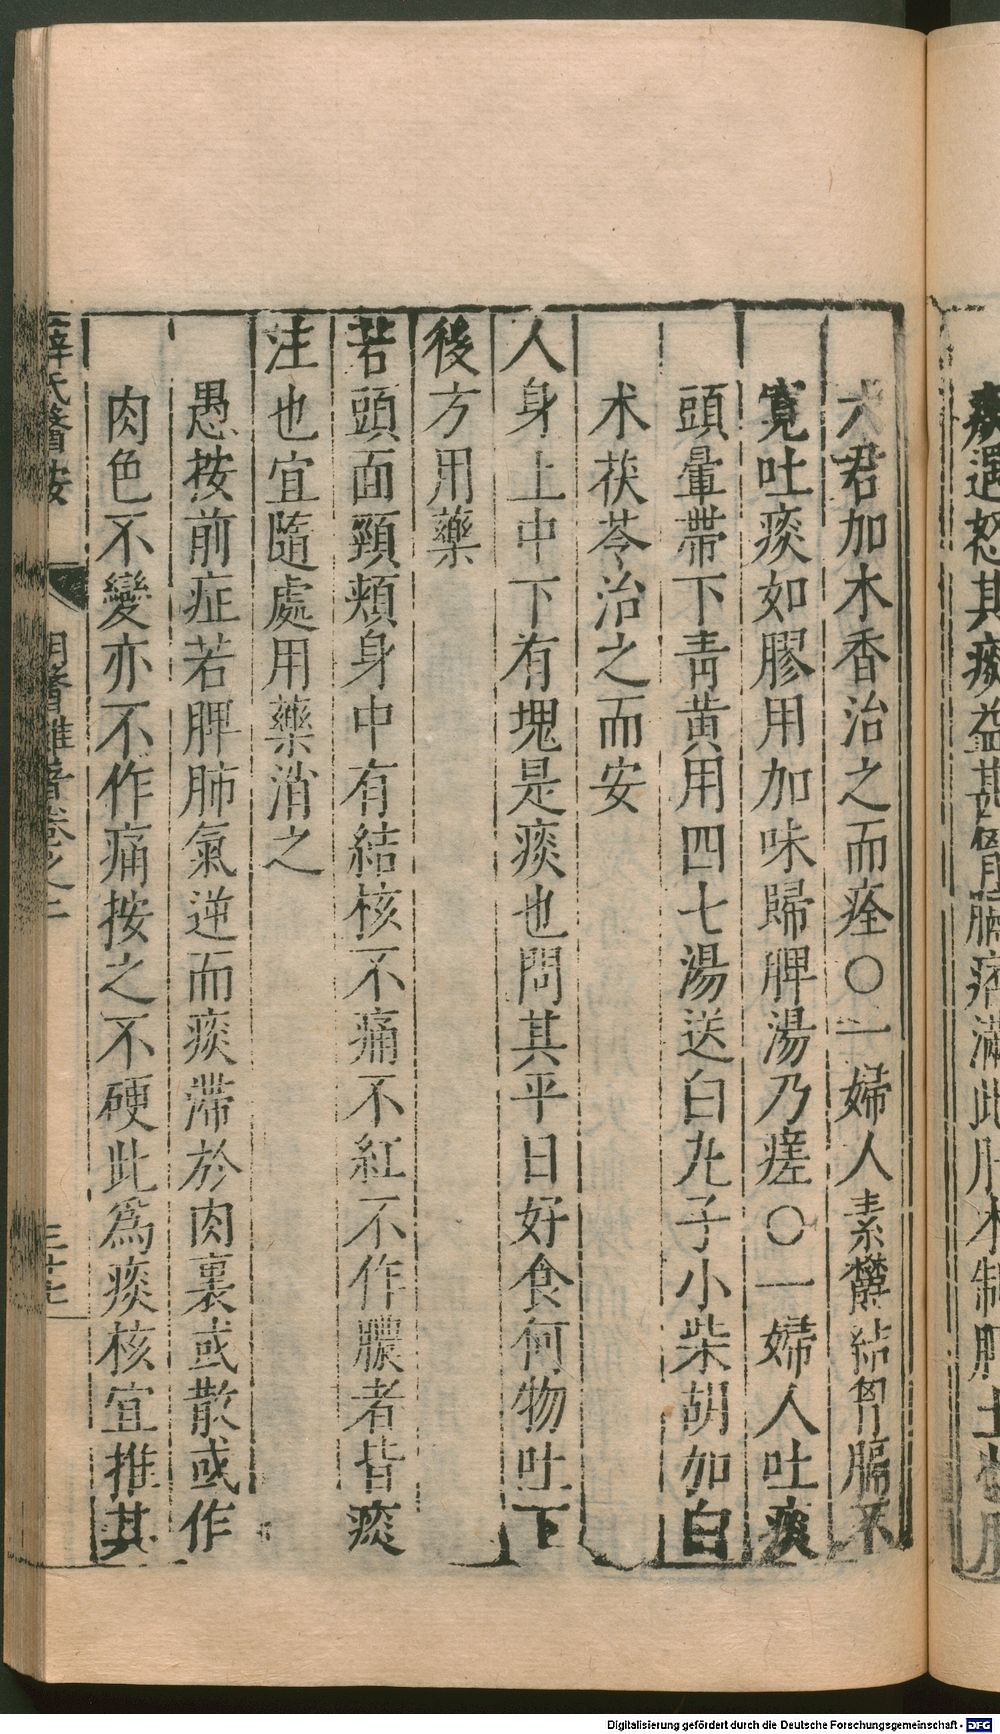 六君加木香治之而痊〇一婦人素鬱結胷膈不
寛吐痰如膠用加味歸脾湯乃瘥〇一婦人吐痰
頭暈帶下青黄用四七湯送白丸子小柴胡加白
术茯苓治之而安
人身上中下有塊是痰也問其平日好食何物吐下
後方用藥
若頭面頸頰身中有結核不痛不紅不作膿者皆痰
注也宜隨處用藥消之
愚按前症若脾肺氣逆而痰滯於肉裏或散或作
肉色不變亦不作痛按之不硬此爲痰核宜推其
薛氏醫按 明醫雜著卷之二
Digitalisierung gefördert durch die Deutsche Forschungsgemeinschaft - DFG